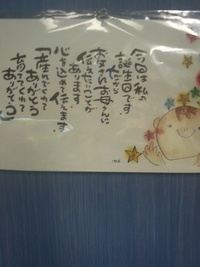 今日は私の
誕生日です
だから
お父さんお母さんに
伝えたいことが
あります
心を込めて伝えます
「産んでくれて
ありがとう
育ててくれて
ありがとう」